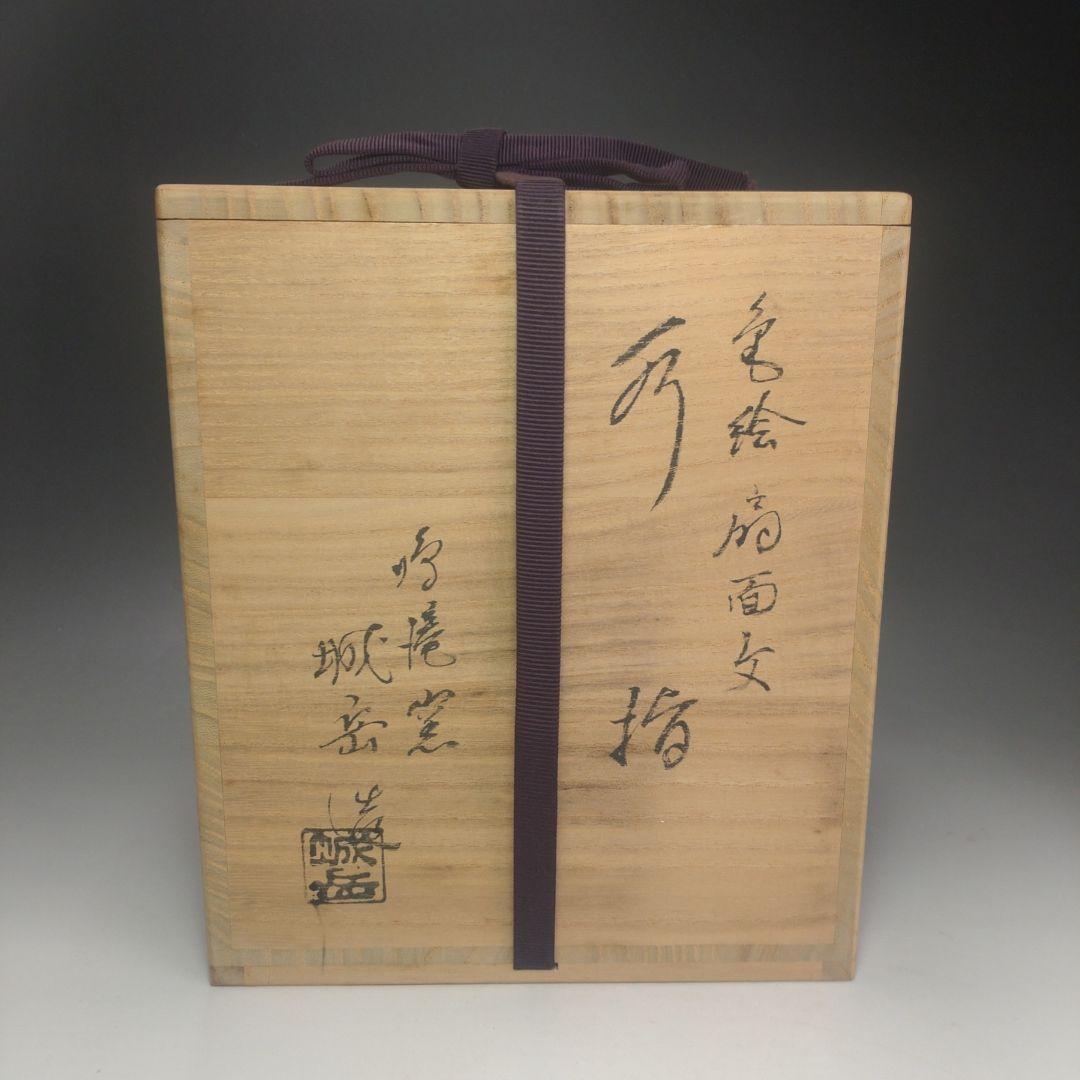 色絵 扇面文
水指
鳴滝窯
城岳 造
城岳